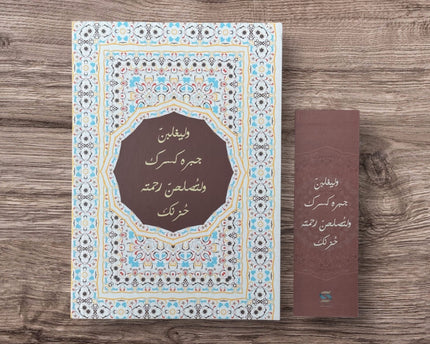 وليغلبنّ
جبره كسرك
ولتُصلحنّ رحمته
حُزنك
وليغلبنّ
جبره كسرك
ولتُصلحنّ رحمته
حُزنك